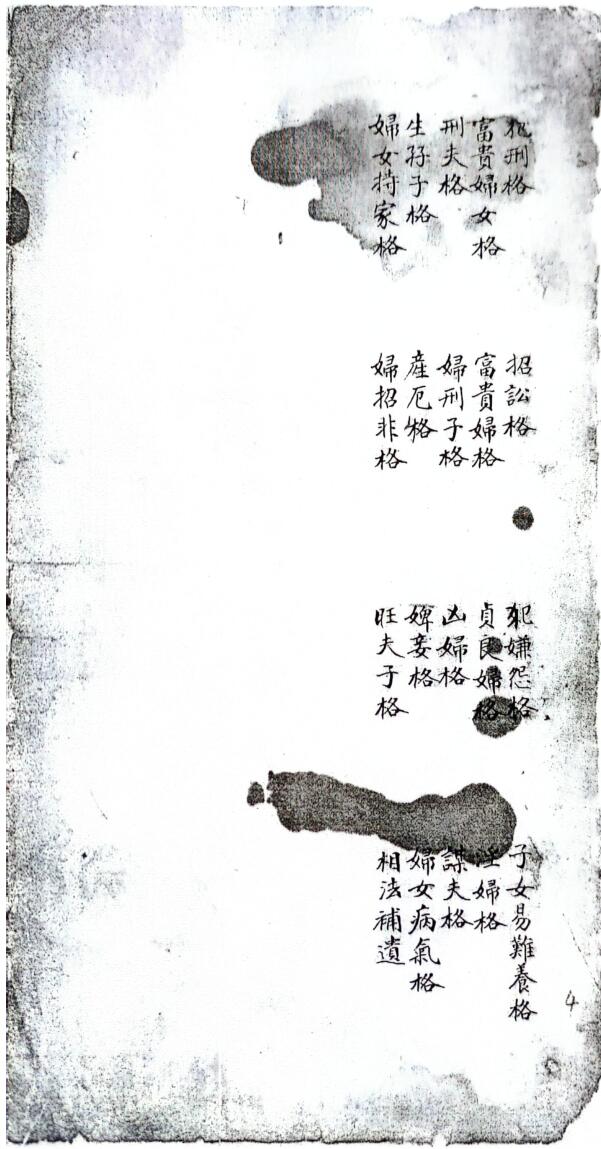 犯刑格 招訟格 犯嫌怨格 子女易難養格
富貴婦女格 富貴婦格 貞良婦格 淫婦格
刑夫格 婦刑子格 凶婦格 謀夫格
生孖子格 產厄格 婢妾格 婦女病氣格
婦女持家格 婦招非格 旺夫子格 相法補遺
4